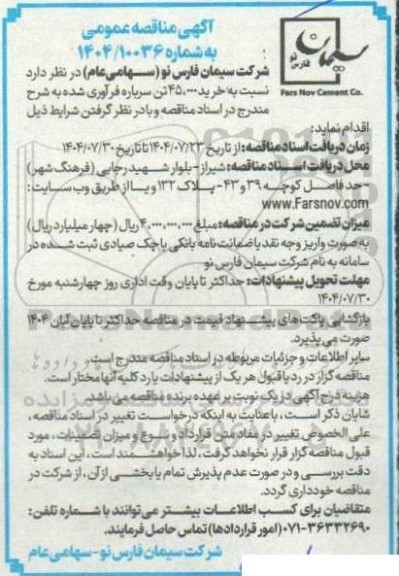 آگهی مناقصه عمومی
به شماره ۱۴۰۴/۱۰۰۳۶
سیمان
فارس نو
Fars Nov Cement Co.
شرکت سیمان فارس نو (سهامی عام) در نظر دارد
نسبت به خرید ۴۵،۰۰۰ تن سرباره فرآوری شده به شرح
مندرج در اسناد مناقصه و با در نظر گرفتن شرایط ذیل
اقدام نماید:
زمان دریافت اسناد مناقصه: از تاریخ ۱۴۰۴/۰۷/۲۳ تا تاریخ ۱۴۰۴/۰۷/۳۰
محل دریافت اسناد مناقصه: شیراز - بلوار شهید رجایی (فرهنگ شهر)
- حد فاصل کوچه ۳۹ و ۴۳ - پلاک ۱۳۲ و یا از طریق وب سایت:
www.Farsnov.com
میزان تضمین شرکت در مناقصه: مبلغ ۴،۰۰۰،۰۰۰،۰۰۰ ریال (چهار میلیارد ریال)
به صورت واریز وجه نقد یا ضمانت نامه بانکی یا چک صیادی ثبت شده در
سامانه به نام شرکت سیمان فارس نو
مهلت تحویل پیشنهادات: حداکثر تا پایان وقت اداری روز چهارشنبه مورخ
۱۴۰۴/۰۷/۳۰
بازگشایی پاکت های پیشنهاد قیمت در مناقصه حداکثر تا پایان آبان ۱۴۰۴
صورت می پذیرد.
سایر اطلاعات و جزئیات مربوطه در اسناد مناقصه مندرج است.
مناقصه گزار در رد یا قبول هر یک از پیشنهادات یا رد کلیه آنها مختار است.
هزینه درج آگهی در یک نوبت بر عهده برنده مناقصه می باشد.
شایان ذکر است، با عنایت به اینکه درخواست تغییر در اسناد مناقصه،
علی الخصوص تغییر در مفاد متن قرارداد و نوع و میزان تضمینات، مورد
قبول مناقصه گزار قرار نخواهد گرفت، لذا خواهشمند است، این اسناد به
دقت بررسی و در صورت عدم پذیرش تمام یا بخشی از آن، از شرکت در
مناقصه خودداری گردد.
متقاضیان برای کسب اطلاعات بیشتر می توانند با شماره تلفن:
۰۷۱-۳۶۳۳۲۶۹۰ (امور قراردادها) تماس حاصل فرمایند.
شرکت سیمان فارس نو - سهامی عام